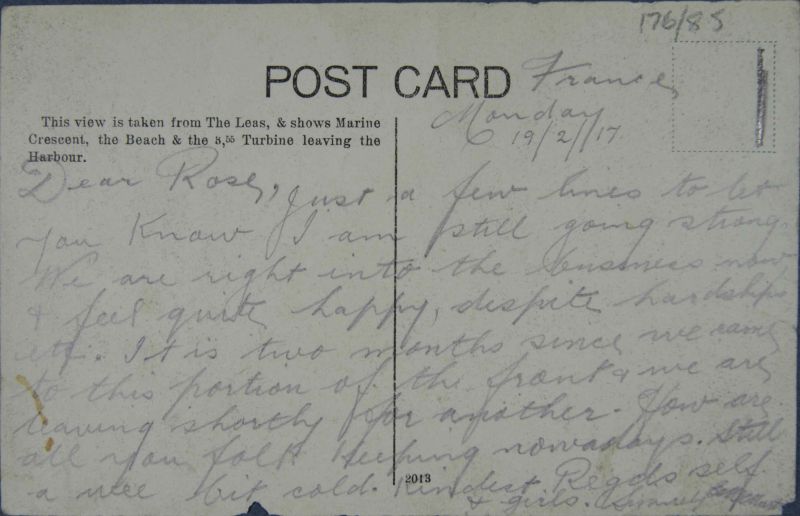 176/85
POST CARD
This view is taken from The Leas, & shows Marine
Crescent, the Beach & the 3,55 Turbine leaving the
Harbour.
France,
Monday
19/2/17
Dear Rose, Just a few lines to let
you Know I am still going strong.
We are right into the business now
& feel quite happy, despite hardships
etc. It is two months since we came
to this portion of the front & we are
leaving shortly for another. How are
all you folk keeping nowadays. Still
a wee bit cold. Kindest Regds self
& girls.
2013